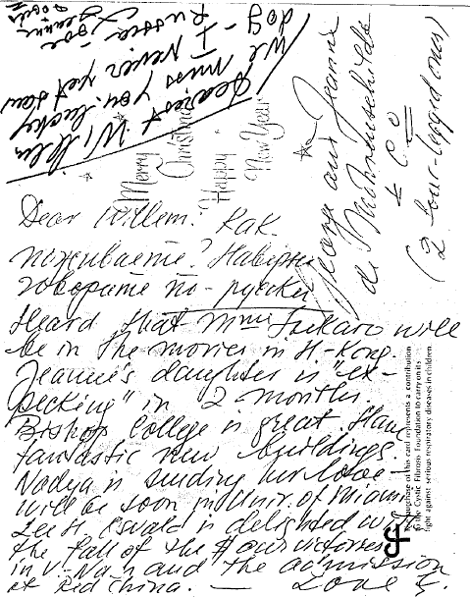 Dearest Willem
We miss you, lucky
dog - I never yet saw
Russia, joe
Jeanne
Merry
Christmas
Happy
New Year
George and Jeanne
de Mohrenschildt
& Co
(2 four-legged ones)
Dear Willem. Как
поживаете? Наверно
говорите по-русски
Heard that Mme Sukaro will
be in the movies in H-Kong.
Jeanne's daughter is "ex-
pecking" in 2 months.
Bishop College is great. Have
fantastic new buildings.
Nadya is sending her love
will be soon in Univ. of Miami
Lee H Oswald is delighted with
the fall of the $ our victories
in V-Nam and the admission
of Red China. — Love G.
The purchase of this card represents a contribution
to the Cystic Fibrosis Foundation to carry on its
fight against serious respiratory diseases in children.
cf